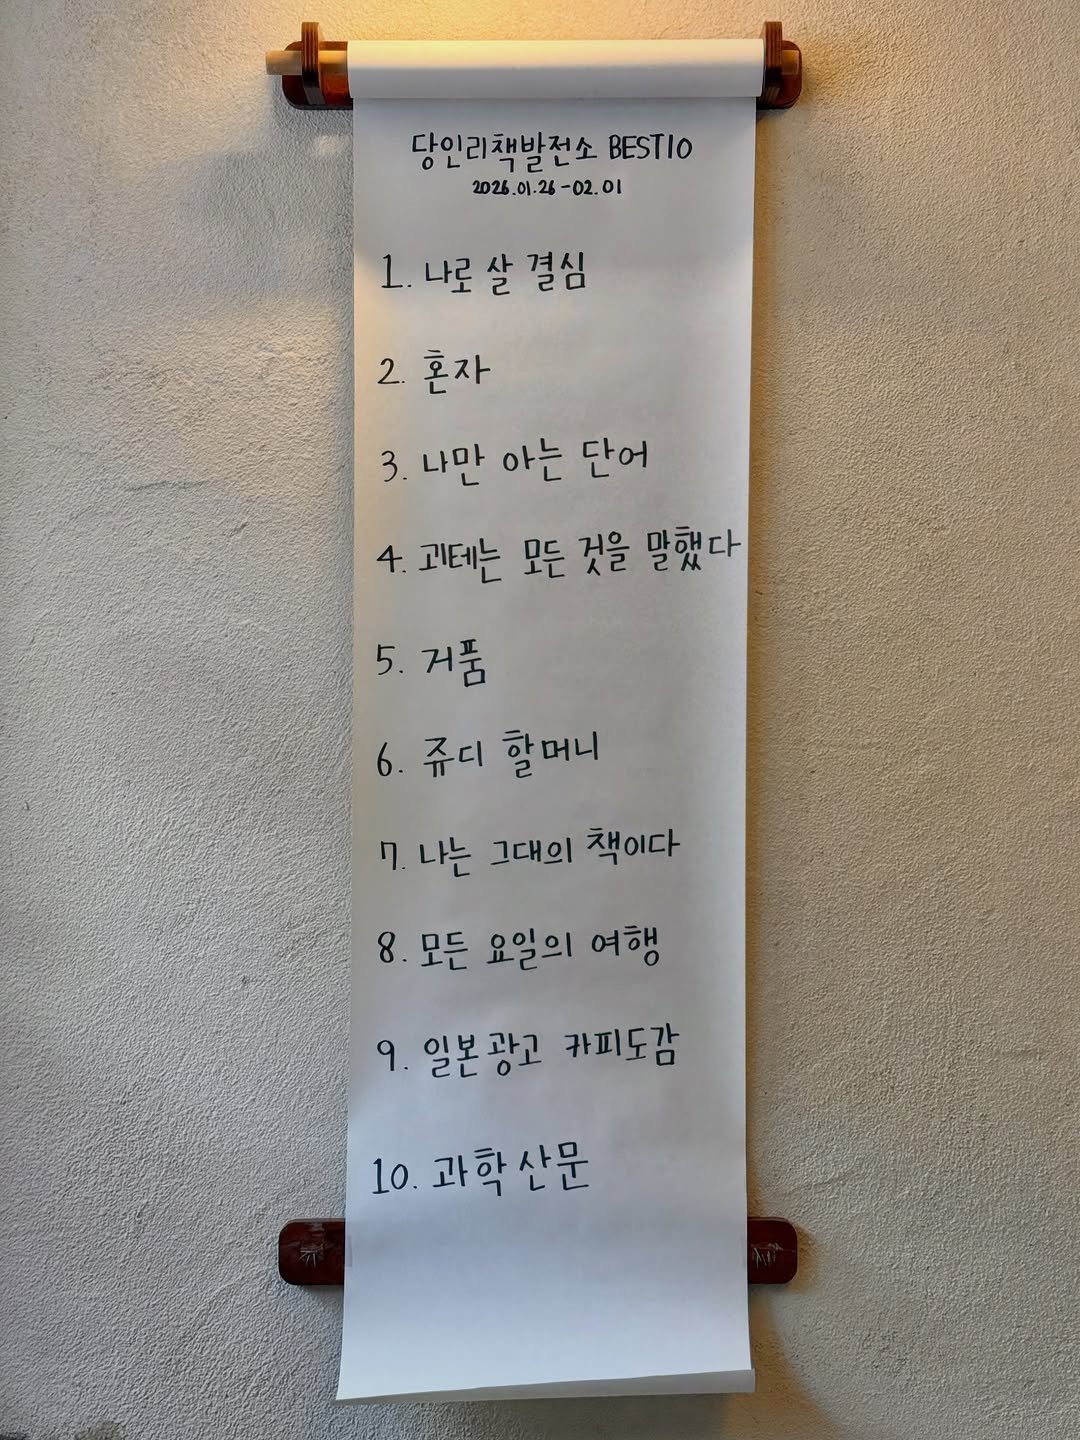 당인리책발전소 BEST10
2026.01.26-02.01
1. 나로 살 결심
2. 혼자
3. 나만 아는 단어
4. 괴테는 모든 것을 말했다
5. 거품
6. 쥬디 할머니
7. 나는 그대의 책이다
8. 모든 요일의 여행
9. 일본광고 카피도감
10. 과학산문